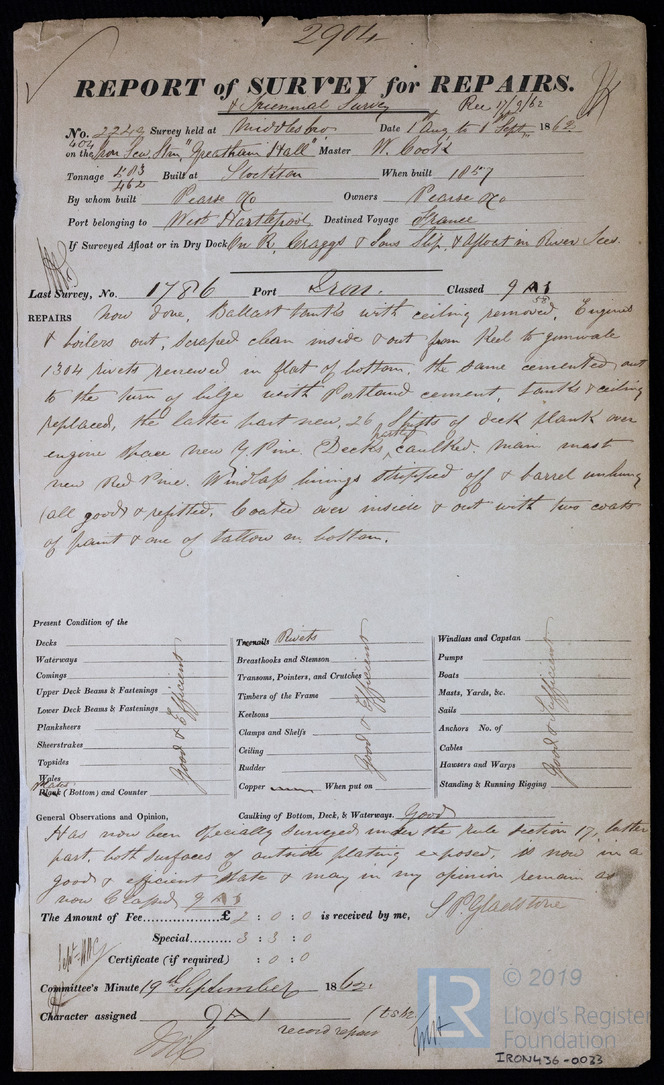 2904
REPORT of SURVEY for REPAIRS.
& Triennial Survey Rec 17/9/62
No. 2242 Survey held at Middlesbro Date 1st Aug to 1st Sept. 1862
404
on the Iron Scw Stm "Greatham Hall" Master W. Cook
Tonnage 583 Built at Stockton When built 1857
462
By whom built Pearse & Co Owners Pearse & Co
Port belonging to West Hartlepool Destined Voyage France
If Surveyed Afloat or in Dry Dock On R. Craggs & Sons Slip & afloat in River Tees.
Last Survey, No. 1786 Port Iron. Classed 9 A1
58
REPAIRS Now done, Ballast tanks with ceiling removed, Engines
& boilers out, scraped clean inside & out from Keel to gunwale
1304 rivets renewed in flat of bottom, the same cemented out
to the turn of bilge with Portland cement, tanks & ceiling
replaced, the latter part new, 26 Shifts of deck plank over
engine space new Y Pine. Decks partly caulked. main mast
new Red Pine. Windlass linings stripped off & barrel unhung
(all good) & refitted. Coated over inside & out with two coats
of paint & one of tallow on bottom.
Present Condition of the
Decks
Waterways
Comings
Upper Deck Beams & Fastenings
Lower Deck Beams & Fastenings
Planksheers
Sheerstrakes
Topsides
Wales
Plates
Plank (Bottom) and Counter
Good & Efficient
Treenails Rivets
Breasthooks and Stemson
Transoms, Pointers, and Crutches
Timbers of the Frame
Keelsons
Clamps and Shelfs
Ceiling
Rudder
Copper When put on
Good & Efficient
Windlass and Capstan
Pumps
Boats
Masts, Yards, &c.
Sails
Anchors No. of
Cables
Hawsers and Warps
Standing & Running Rigging
Good & Sufficient
General Observations and Opinion, Caulking of Bottom, Deck, & Waterways. Good
Has now been specially surveyed under the rule section 17, latter
part, both surfaces of outside plating exposed, is now in a
good & efficient state & may in my opinion remain as
now Classed 9 A1
The Amount of Fee £ 2 : 0 : 0 is received by me, S P Gladstone
Special 3 : 3 : 0
Certificate (if required) : 0 : 0
Committee's Minute 19th September 1862.
Character assigned 9 A 1
record repair
© 2019
LR
Lloyd's Register
Foundation
IRON436-0033